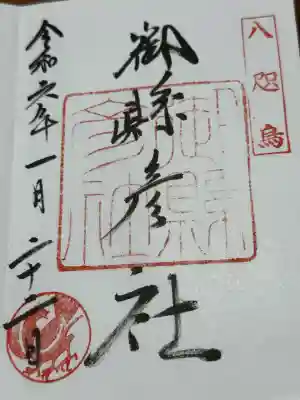 八咫烏
御縣彦社
令和六年一月二十二日